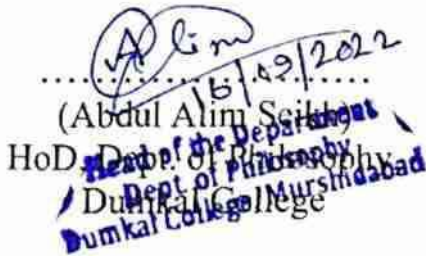 Alim
16/09/2022
(Abdul Alim Seikh)
HoD, Dept. of Philosophy
Dumkal College
Head of the Department
Dept of Philosophy
Dumkal College, Murshidabad